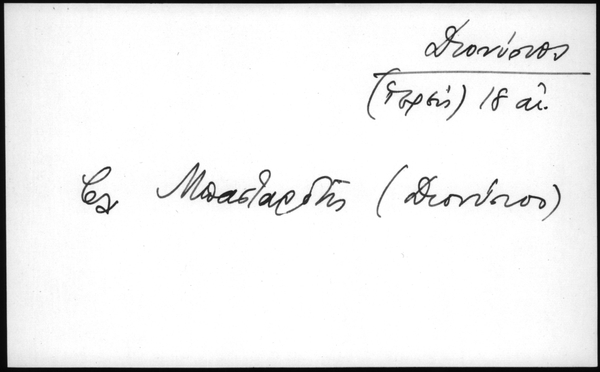 Διονύσιος
(ἱερεύς) 18 αἰ.
βλ Μπασταρδῆς (Διονύσιος)